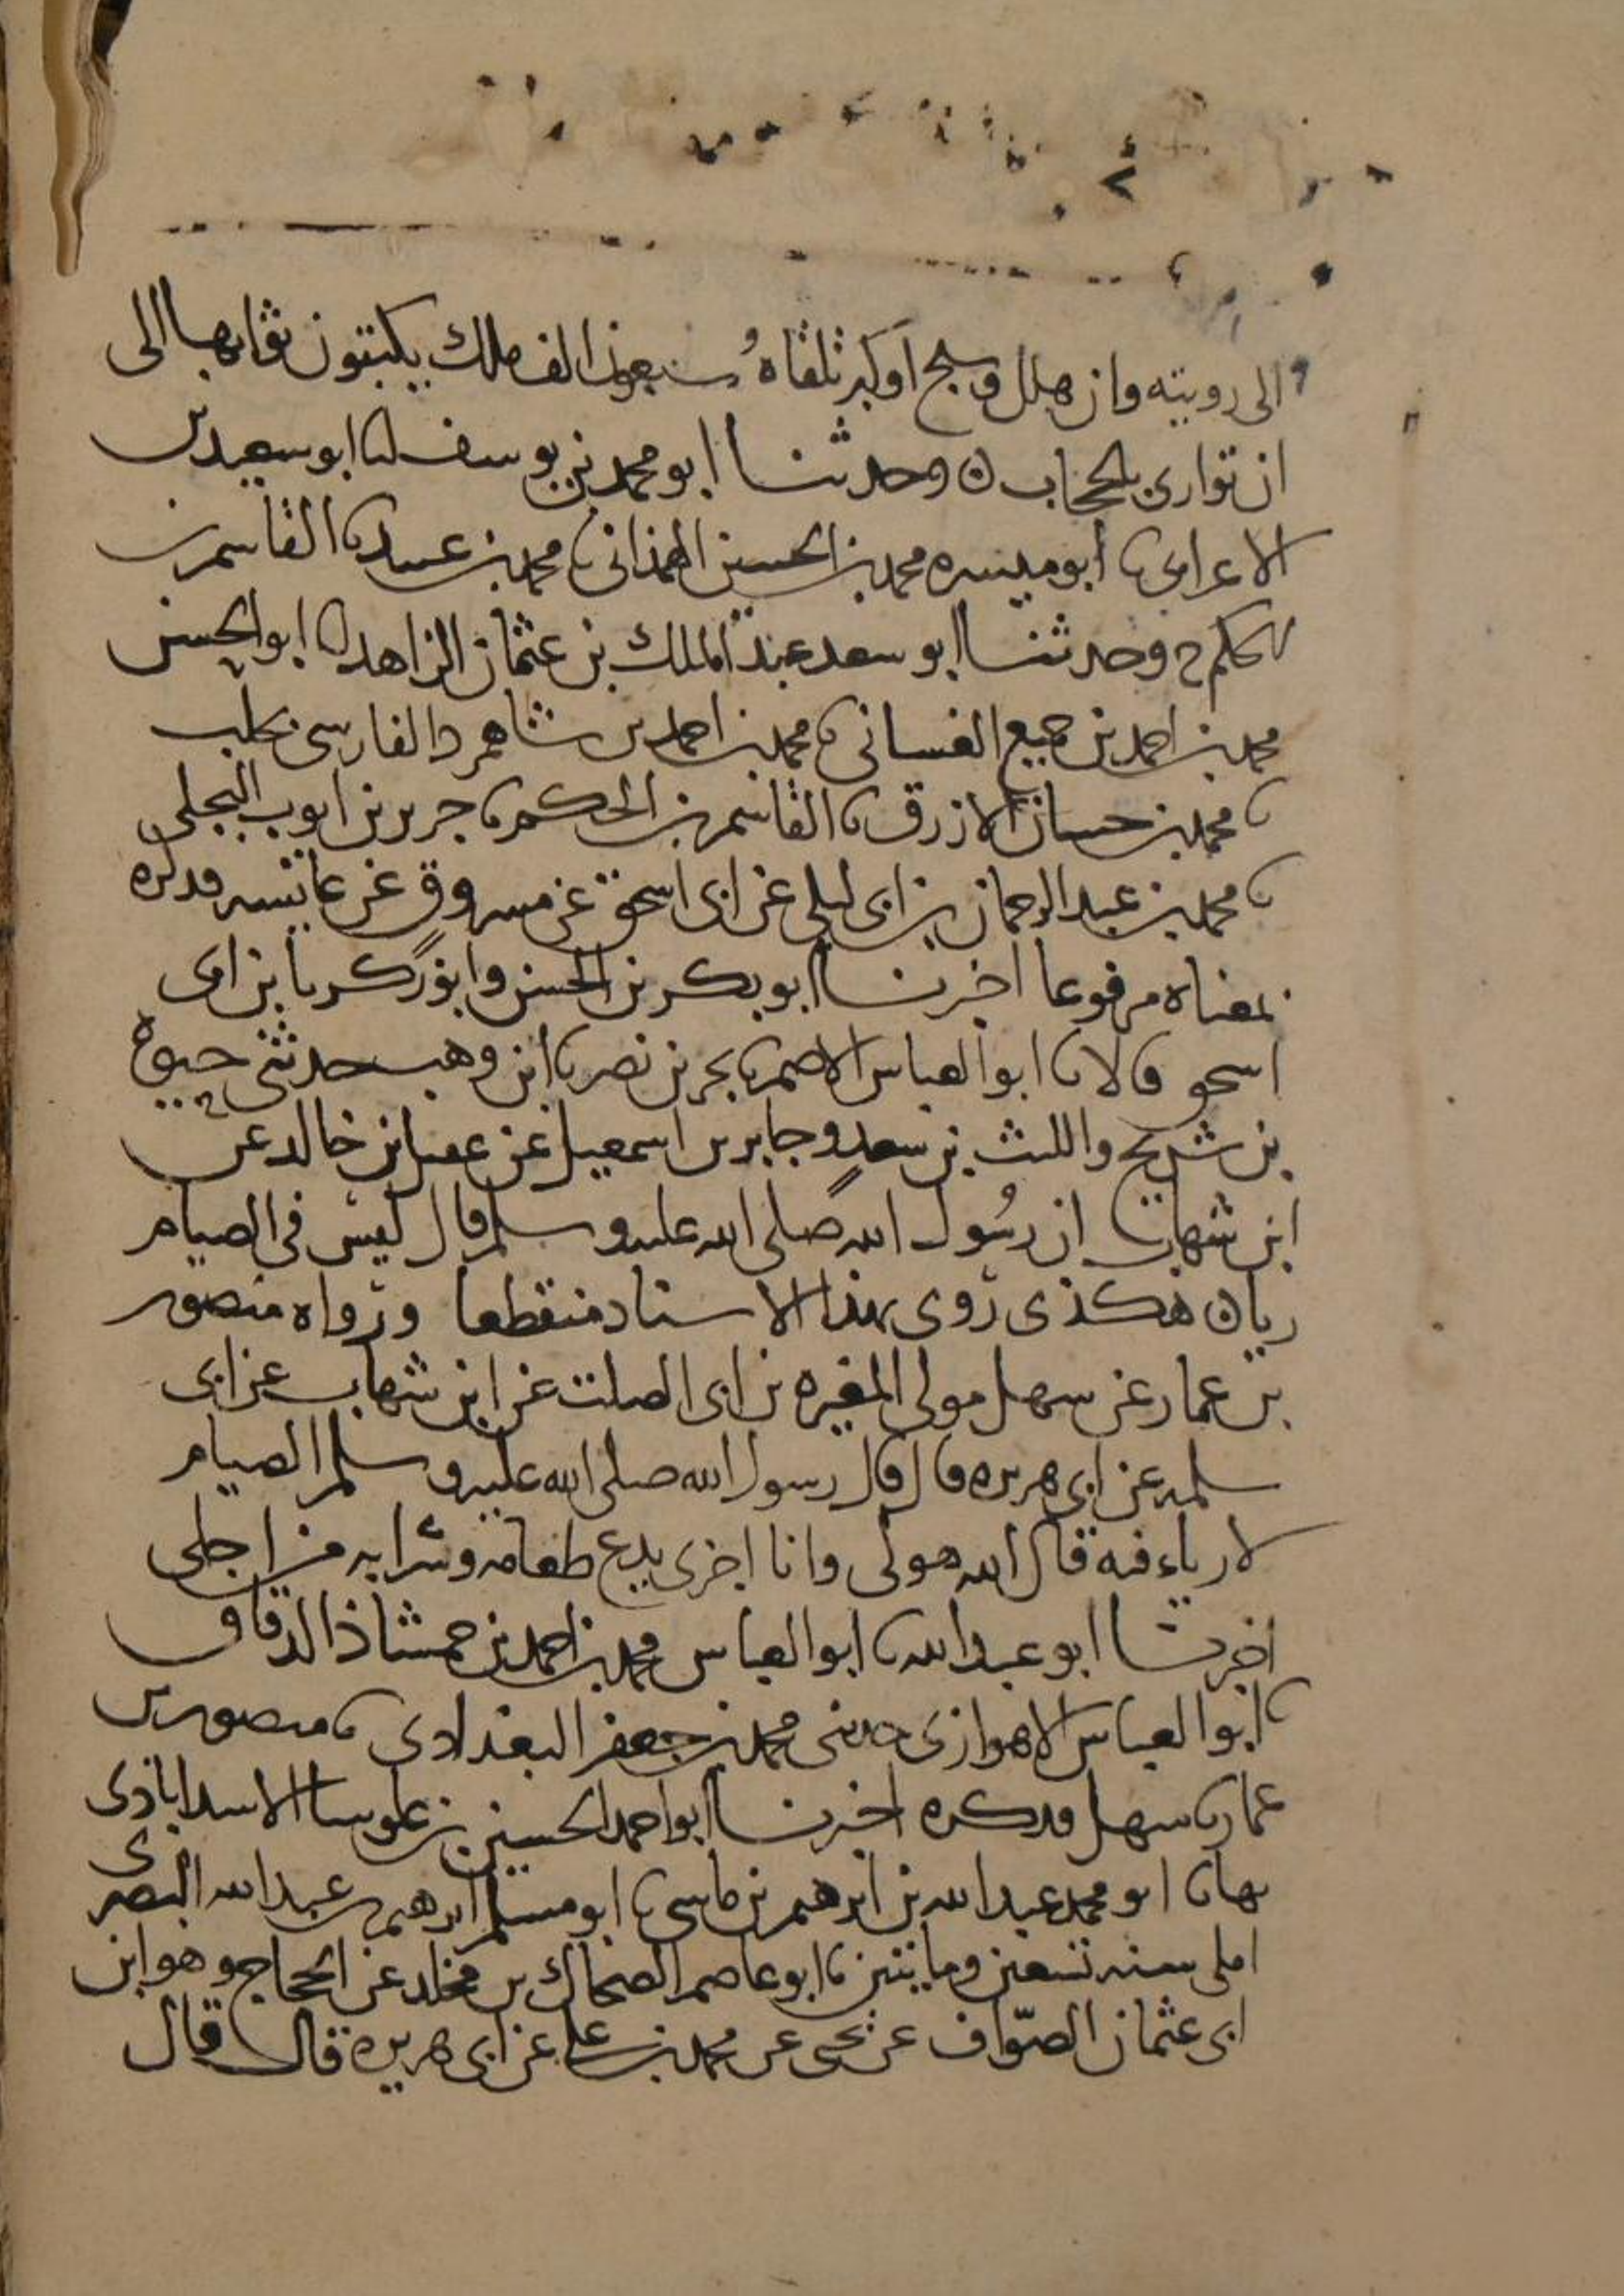 الى رويته وان هلل وسبح او كبر تلقاه سبعون الف ملك يكتبون ثوابها الى
ان توارى بالحجاب ه وحدثنا ابو محمد بن يوسف انا ابو سعيد بن
الاعرابى نا ابو ميسره محمد بن الحسين الهمذانى نا محمد بن عبيد نا القاسم بن
الحكم ح وحدثنا ابو سعد عبد الملك بن عثمان الزاهد انا ابو الحسين
محمد بن احمد بن جميع الغسانى نا محمد بن احمد بن شاهمرد الفارسى بحلب
نا محمد بن حسان الازرق نا القاسم بن الحكم نا جرير بن ايوب البجلى
نا محمد بن عبد الرحمان بن ابى ليلى عن ابى اسحق عن مسروق عن عائشه فذكره
بمعناه مرفوعا اخبرنا ابو بكر بن الحسن وابو زكريا بن ابى
اسحق قالا نا ابو العباس الاصم نا بحر بن نصر نا ابن وهب حدثنى حيوة
بن شريح والليث بن سعد وجابر بن اسمعيل عن عقيل بن خالد عن
ابن شهاب ان رسول الله صلى الله عليه وسلم قال ليس فى الصيام
رياء ه هكذى روى بهذا الاسناد منقطعا ورواه منصور
بن عمار عن سهل مولى المغيره بن ابى الصلت عن ابن شهاب عن ابى
سلمه عن ابى هريره قال قال رسول الله صلى الله عليه وسلم الصيام
لا رياء فيه قال الله هو لى وانا اجزى يدع طعامه وشرابه من اجلى
اخبرنا ابو عبد الله نا ابو العباس محمد بن احمد بن حمشاذ الدقاق
نا ابو العباس الاهوازى حدثنى محمد بن جعفر البغدادى نا منصور بن
عمار نا سهل فذكره اخبرنا ابو احمد الحسين بن علوسا الاسداباذى
بها نا ابو محمد عبد الله بن ابرهيم بن ماسى نا ابو مسلم ابرهيم بن عبد الله البصرى
املى سنه تسعين ومايتين نا ابو عاصم الضحاك بن مخلد عن الحجاج وهو ابن
ابى عثمان الصواف عن يحيى عن محمد بن على عن ابى هريره قال قال